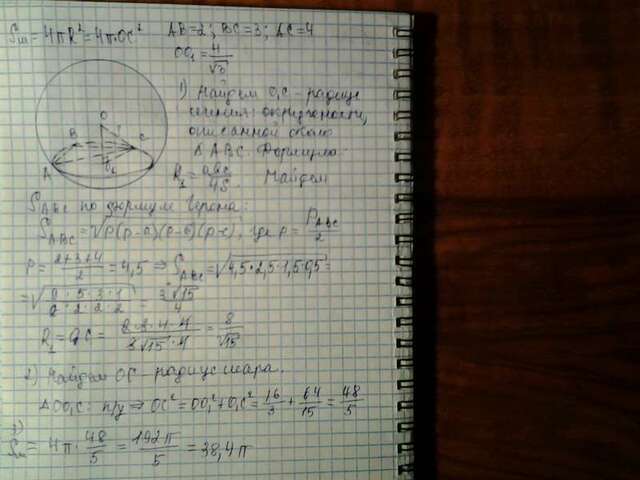 Sш = 4πR² = 4π·OC²
AB=2; BC=3; AC=4
OO₁ = 4/√3
O
B
C
A
O₁
1) Найдем O₁C – радиус
окружности,
описанной около
Δ ABC. Формула:
R₁ = abc/4S. Найдем
S ABC по формуле Герона:
S ABC = √p(p-a)(p-b)(p-c), где p = P ABC/2
p = (2+3+4)/2 = 4,5 ⇒ S ABC = √4,5·2,5·1,5·0,5 =
= √(9·5·3·1)/(2·2·2·2) = 3√15/4
R₁ = O₁C = (2·3·4·4)/(3√15·4) = 8/√15
2) Найдем OC – радиус шара.
ΔOO₁C: п/у ⇒ OC² = OO₁² + O₁C² = 16/3 + 64/15 = 48/5
3) Sш = 4π·48/5 = 192π/5 = 38,4π